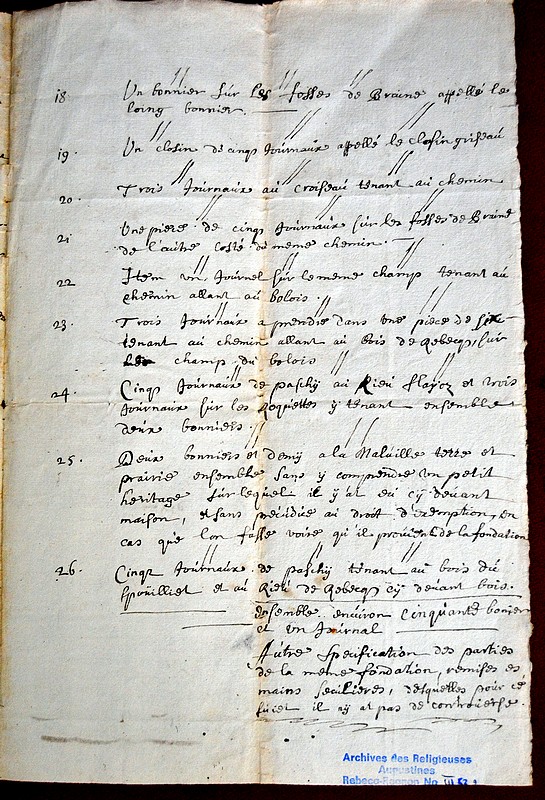 18. Un bonnier sur les fosses de Braine appellé le
loing bonnier.
19. Un closin de cinq Journaux appellé le closin griseau
20. Trois Journaux au croiseau tenant au chemin
21. Une piece de cinq Journaux sur les fosses de Braine
de l'autre costé du meme chemin.
22 Item un Journel sur le meme champ tenant au
chemin allant au bolois.
23. Trois Journaux a prendre dans une piece de six
tenant au chemin allant au bois de Rebecq, sur
champ du bolois
24. Cinq Journaux de paschy au Rieu et trois
Journaux sur les Roquettes y tenant ensemble
deux bonniers.
25. Deux bonniers et demy a la Malaille terre et
prairie ensemble sans y comprendre un petit
heritage sur lequel il y at eu cy devant
maison, et sans au droit d'exemption, en
cas que lon fasse voire qu'il provient de la fondation
26. Cinq Journaux de paschy tenant au bois du
spouilliet et au Rieu de Rebecq cy devant bois.
ensemble environ cinquante bonniers
et un Journal
Autre specification des parties
de la meme fondation, remises es
mains seculieres, desquelles pour ce
suiet il ny at pas de controverse.
Archives des Religieuses
Augustines
Rebecq-Rognon No III